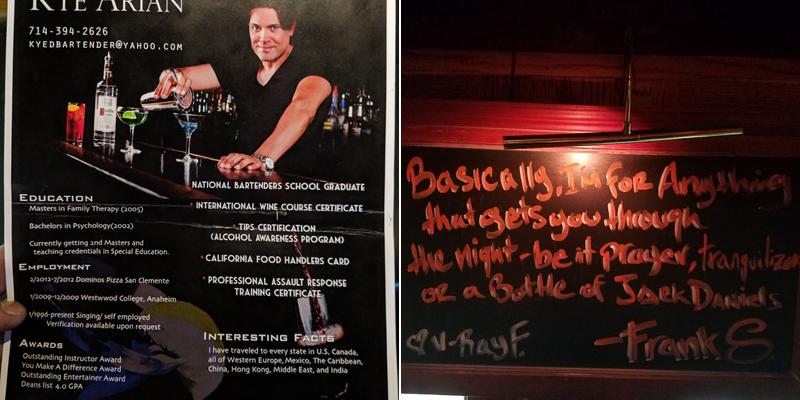 KYE ARIAN
714-394-2626
KYEDBARTENDER@YAHOO.COM
EDUCATION
Masters in Family Therapy (2005)
Bachelors in Psychology(2002)
Currently getting 2nd Masters and
teaching credentials in Special Education.
EMPLOYMENT
2/2012-7/2012 Dominos Pizza San Clemente
1/2009-12/2009 Westwood College, Anaheim
1/1996-present Singing/ self employed
Verification available upon request
AWARDS
Outstanding Instructor Award
You Make A Difference Award
Outstanding Entertainer Award
Deans list 4.0 GPA
NATIONAL BARTENDERS SCHOOL GRADUATE
* INTERNATIONAL WINE COURSE CERTIFICATE
* TIPS CERTIFICATION
(ALCOHOL AWARENESS PROGRAM)
* CALIFORNIA FOOD HANDLERS CARD
* PROFESSIONAL ASSAULT RESPONSE
TRAINING CERTIFICATE
INTERESTING FACTS
I have traveled to every state in U.S, Canada,
all of Western Europe, Mexico, The Caribbean,
China, Hong Kong, Middle East, and India
Basically, I'm for Anything
that gets you through
the night - be it prayer, tranquilizer
or a Bottle of Jack Daniels
V-Ray F.
-Frank S